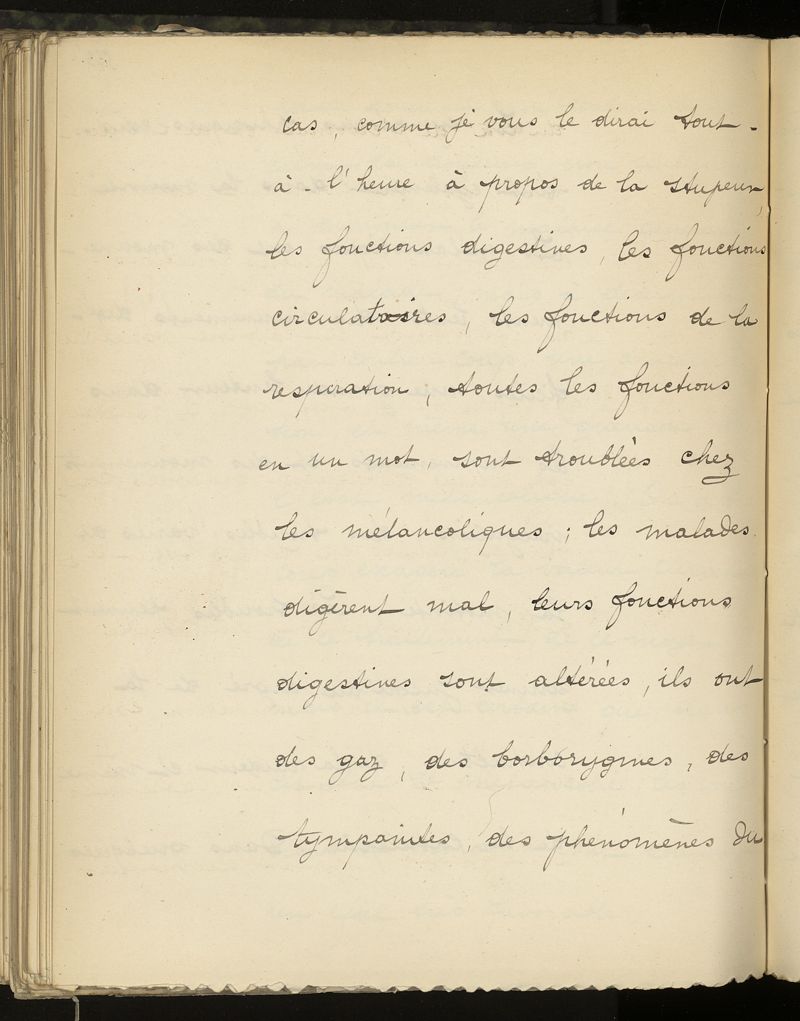 cas, comme je vous le dirai tout-
à-l'heure à propos de la stupeur,
les fonctions digestives, les fonctions
circulatoires, les fonctions de la
respiration, toutes les fonctions
en un mot, sont troublées chez
les mélancoliques ; les malades
digèrent mal, leurs fonctions
digestives sont altérées, ils ont
des gaz, des borborygmes, des
tympanites, des phénomènes du